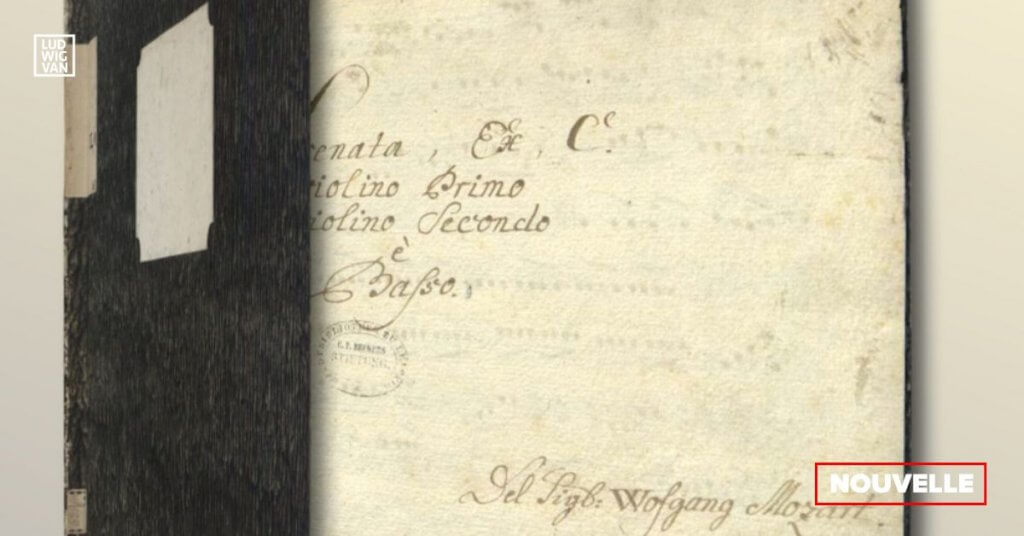 LUD
WIG
VAN
renata, Ex, C.
violino Primo
violino Secondo
è
Basso.
C. F. BECKERS
STIFTUNG.
Del Sigb: Wofgang Mozart.
NOUVELLE